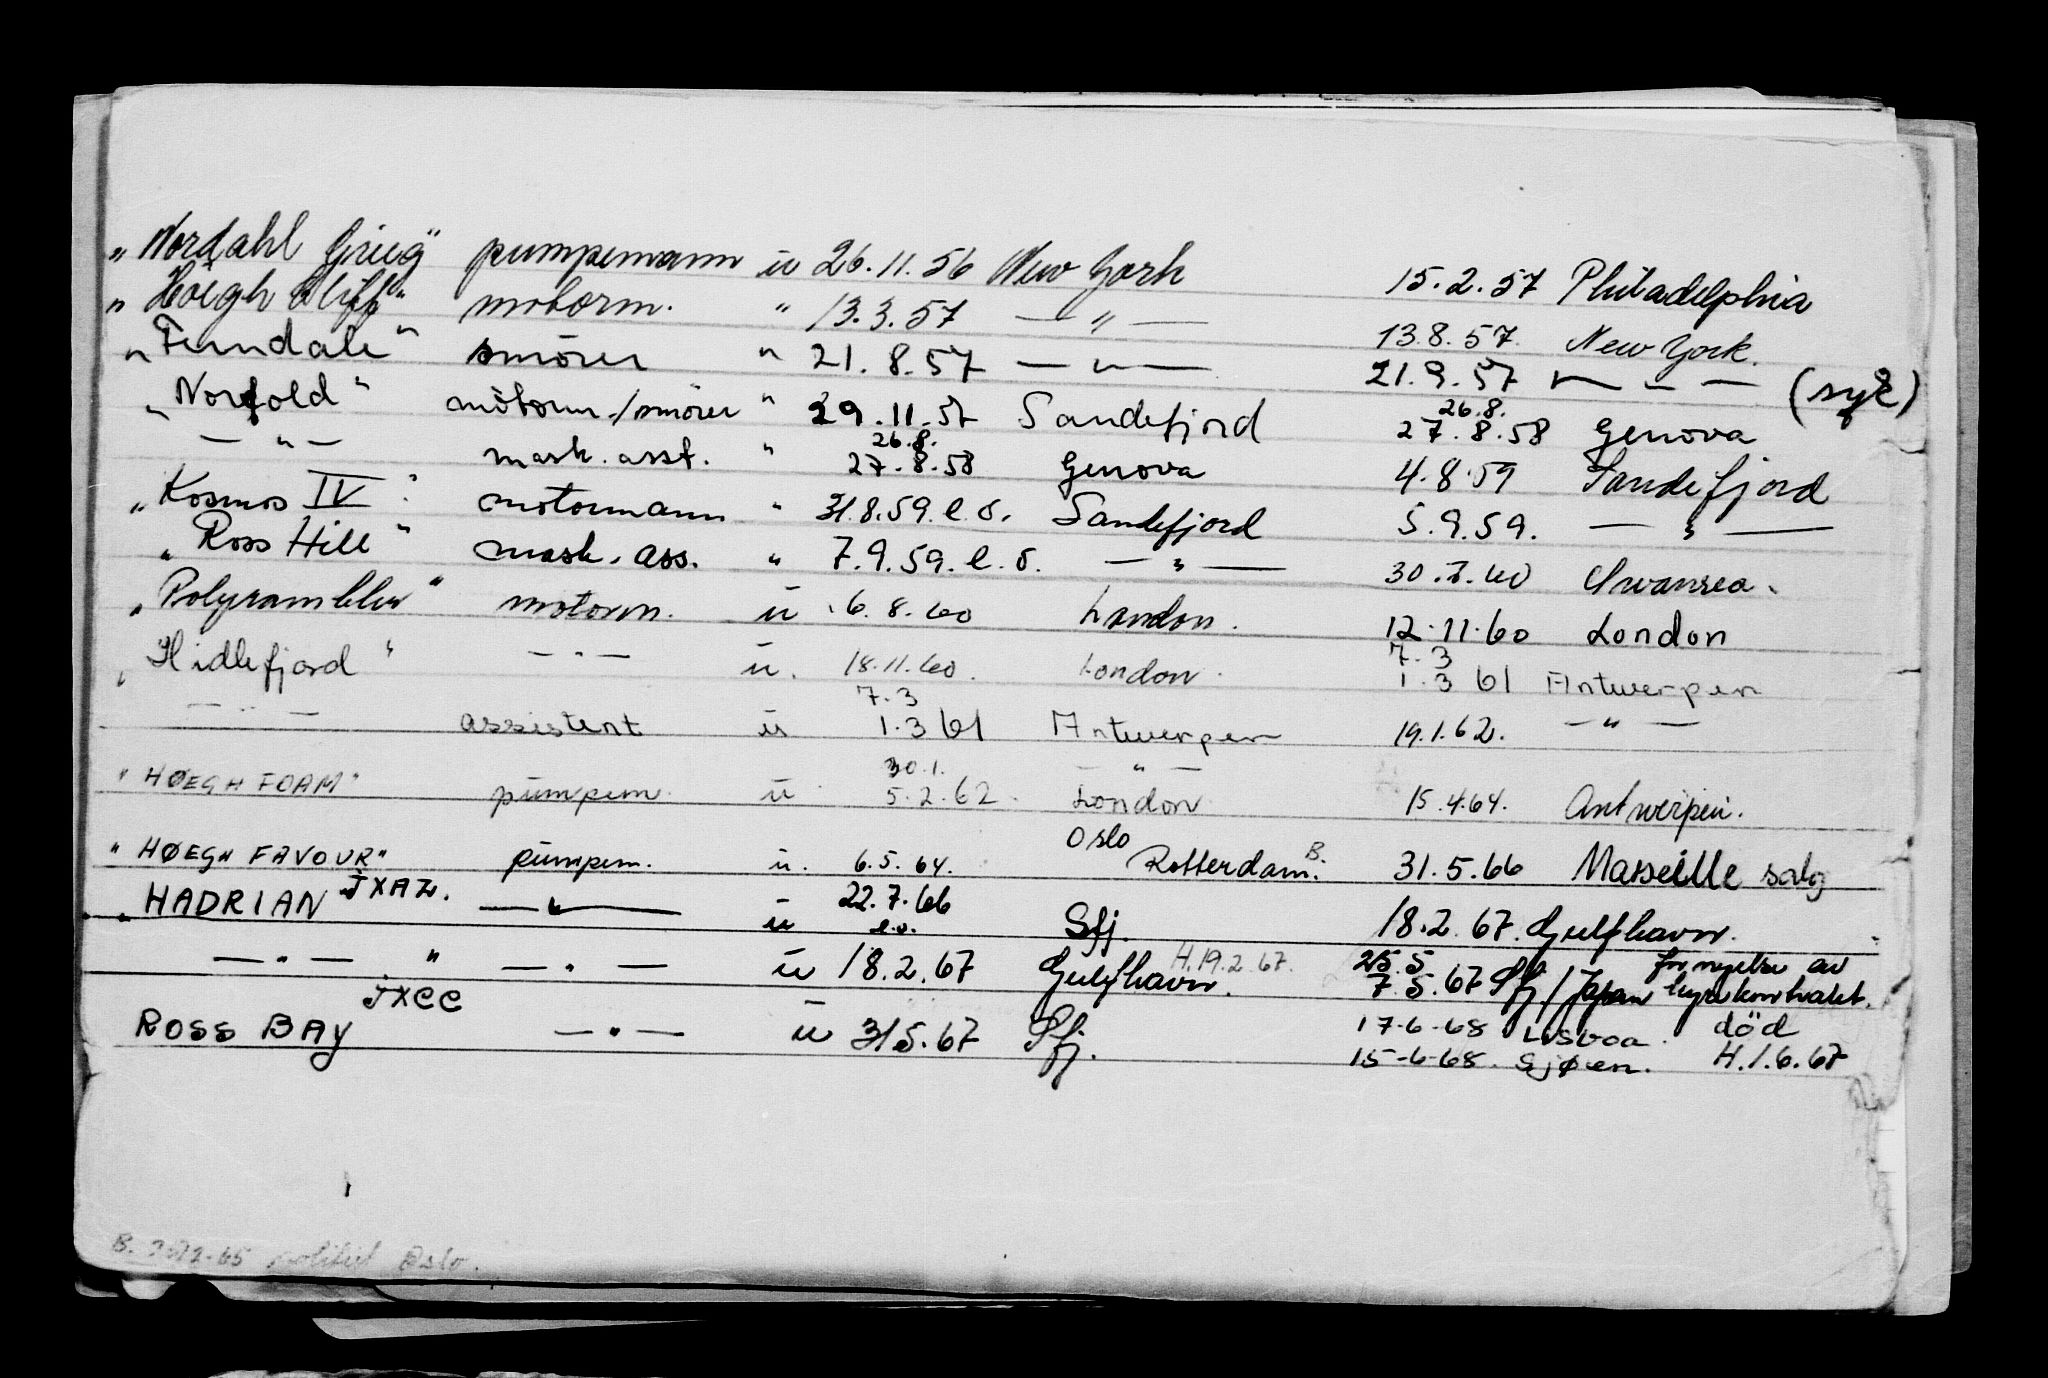 "Nordahl Grieg" pumpemann u 26.11.56 New York 15.2.57 Philadelphia
"Höegh Cliff" motorm. " 13.3.57 — " — 13.8.57. New York.
"Ferndale" smörer " 21.8.57 — " — 21.9.57 — " — (syk)
"Norfold" motorm./smörer " 29.11.57 Sandefjord 26.8. 27.8.58 Genova
— " — mask. asst. " 26.8. 27.8.58 Genova 4.8.59 Sandefjord
"Kosmos IV" motormann " 31.8.59. e.o. Sandefjord 5.9.59. — " —
"Ross Hill" mask. ass. " 7.9.59. e.o. — " — 30.7.60 Swansea.
"Polyrambler" motorm. u 6.8.60 London. 12.11.60 London
"Hidlefjord" — " — u. 18.11.60. London. 7.3 1.3 61 Antwerpen
— " — assistent u 7.3 1.3 61 Antwerpen 19.1.62. — " —
"HØEGH FOAM" pumpem. u 30.1. 5.2.62. — " — London 15.4.64. Antwerpen.
"HØEGH FAVOUR" pumpem. u. 6.5.64. Oslo Rotterdam. B. 31.5.66 Marseille salg
"HADRIAN JXAZ. — " — u 22.7.66 e.o. Sfj. 18.2.67. Gulfhavn.
— " — " — " — u 18.2.67 Gulfhavn. H.19.2.67. 25.5 7.5.67 Sfj/Japan fornyelse av hyrekontrakt.
ROSS BAY JXCC — " — u 31.5.67 Sfj. 17-6-68 Lisboa. död
15-6-68. Sjøen. H.1.6.67
B. politiet Oslo.